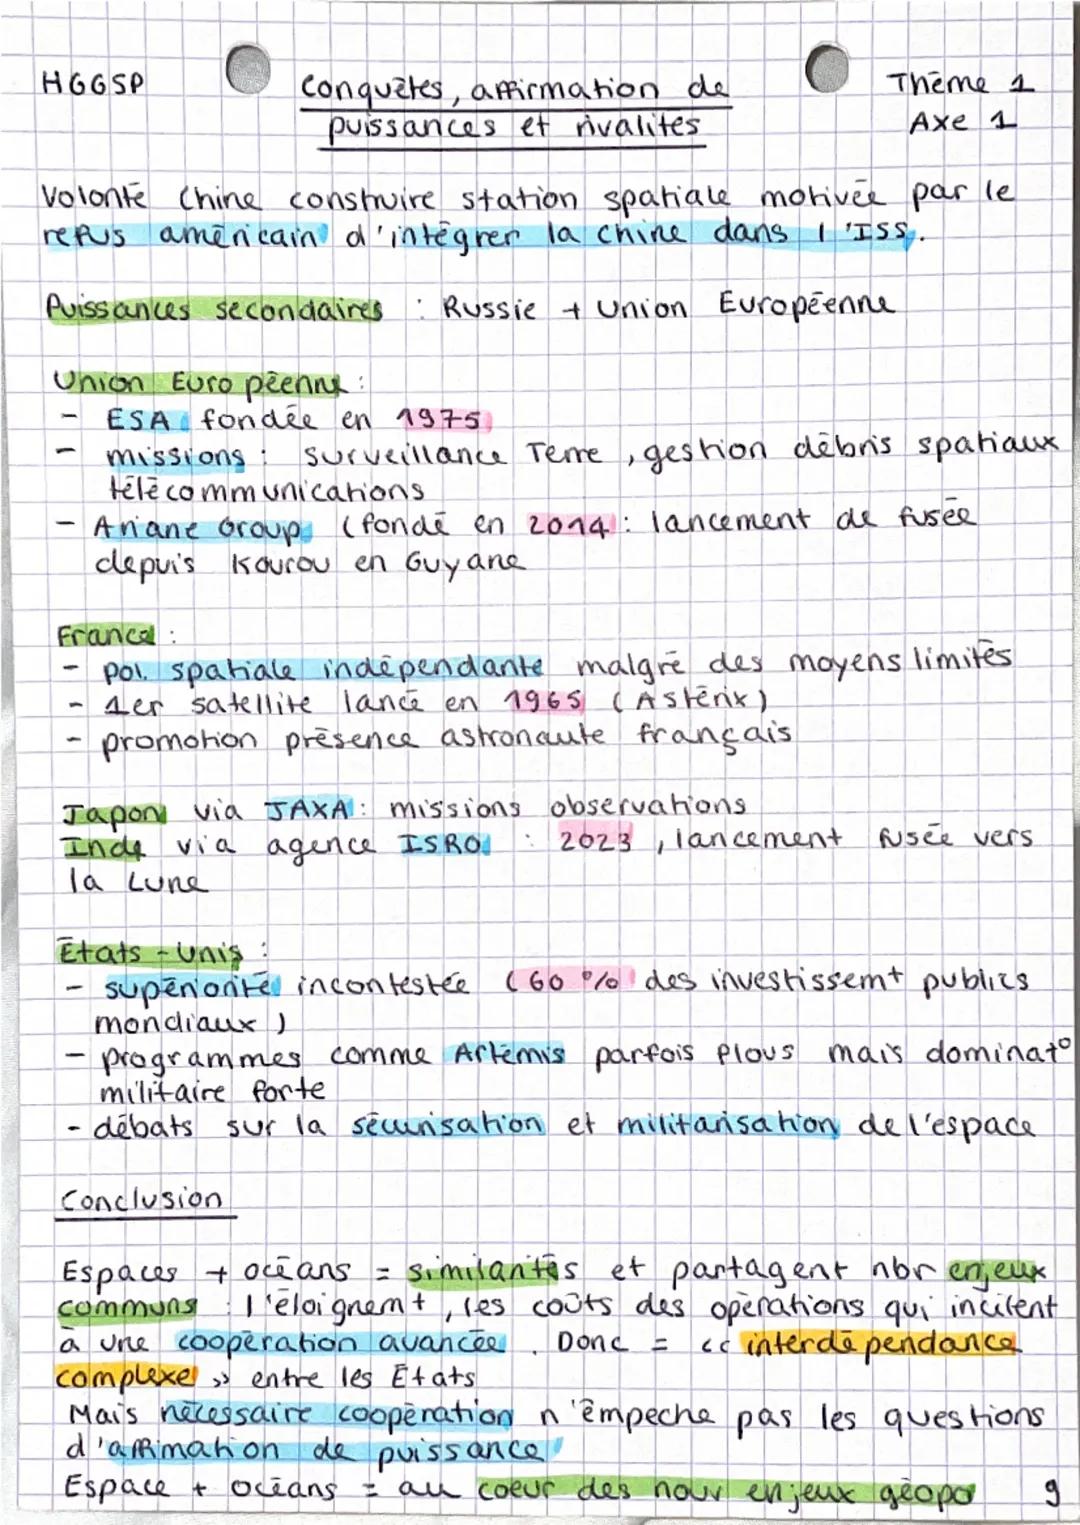 HGGSP
Conquêtes, affirmation de
puissances et rivalités
Thème 1
Axe 1
Volonté Chine construire station spatiale motivée par le
refus américain d'intégrer la Chine dans l'ISS.
Puissances secondaires : Russie + Union Européenne
Union Européenne :
- ESA fondée en 1975
- missions : surveillance Terre, gestion débris spatiaux
télécommunications
- Ariane Group (fondé en 2014 : lancement de fusée
depuis Kourou en Guyane
France :
- pol. spatiale indépendante malgré des moyens limités
- 1er satellite lancé en 1965 (Astérix)
- promotion présence astronaute français
Japon via JAXA : missions observations
Inde via agence ISRO : 2023, lancement fusée vers
la Lune
États-Unis :
- supériorité incontestée (60 % des investissemt publics
mondiaux)
- programmes comme Artémis parfois flous mais dominat°
militaire forte
- débats sur la sécurisation et militarisation de l'espace
Conclusion
Espaces + océans = similarités et partagent nbr enjeux
communs : l'éloignemt, les coûts des opérations qui incitent
à une coopération avancée. Donc = << interdépendance
complexe >> entre les États
Mais nécessaire coopération n'empeche pas les questions
d'affimation de puissance
Espace + océans = au coeur des nouv enjeux géopo
9